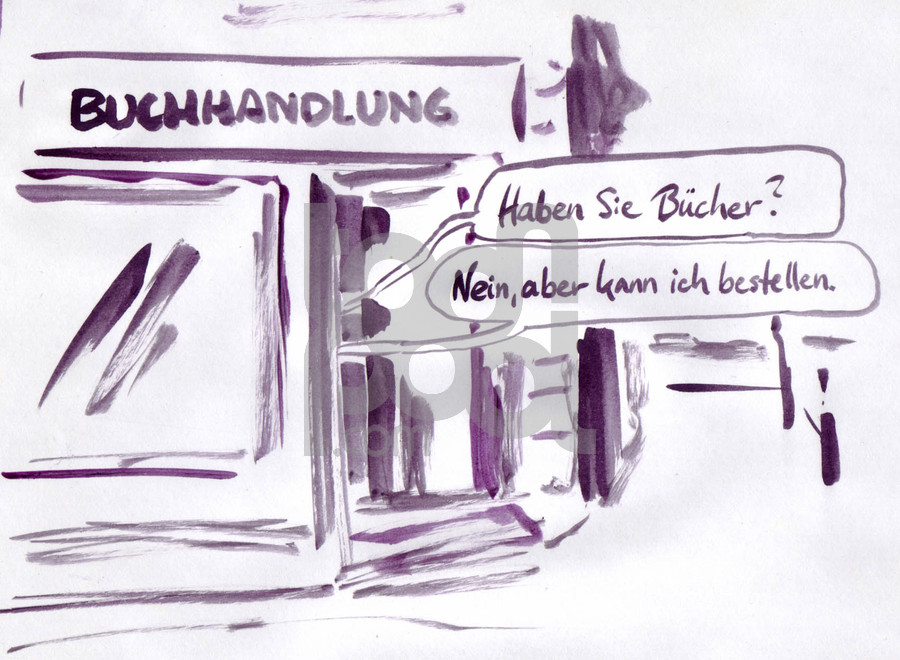 BUCHHANDLUNG
Haben Sie Bücher?
Nein, aber kann ich bestellen.